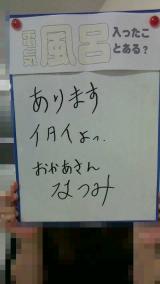 電気風呂入ったことある?
あります
イタイよっ.
おかあさん
なつみ